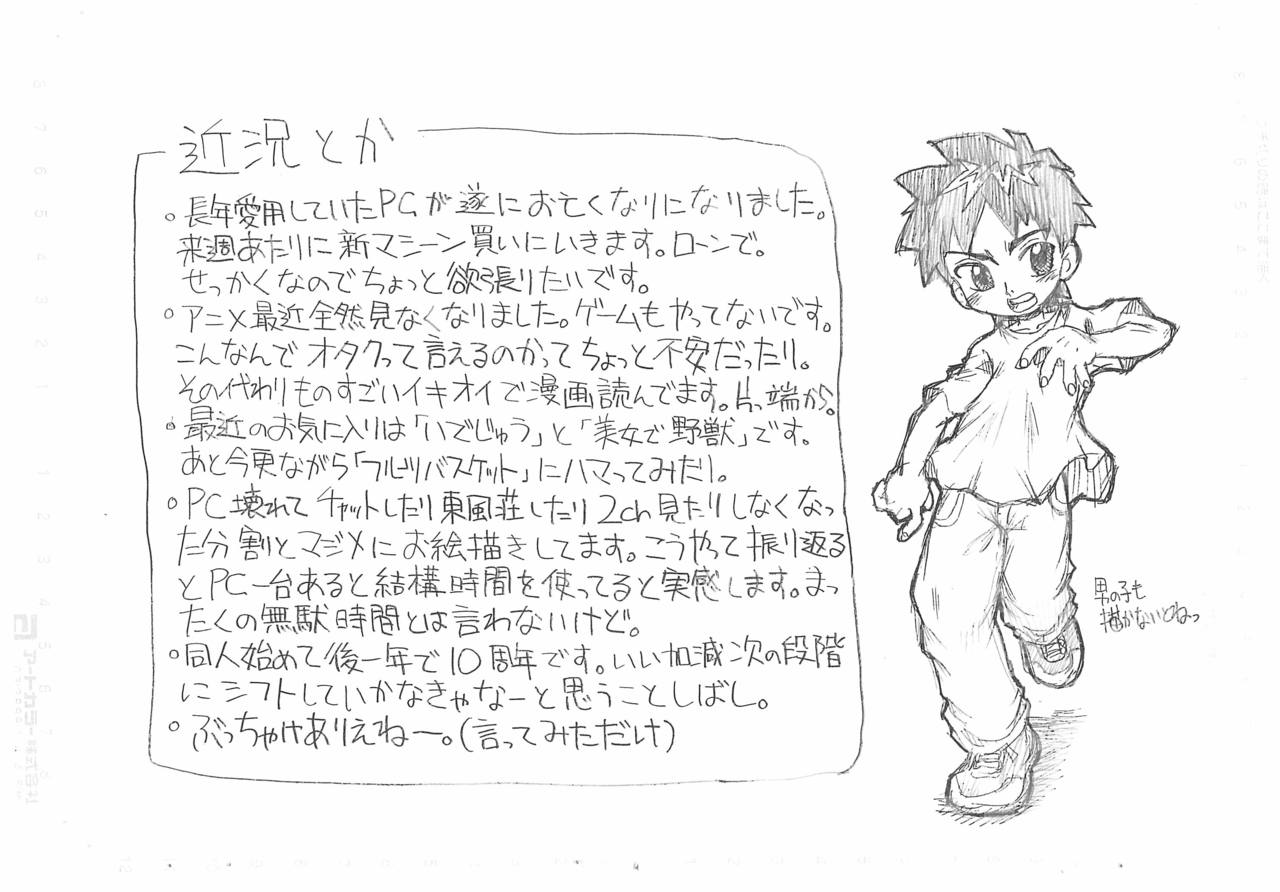 近況とか
。長年愛用していたPCが遂にお亡くなりになりました。
来週あたりに新マシーン買いにいきます。ローンで。
せっかくなのでちょっと欲張りたいです。
。アニメ最近全然見なくなりました。ゲームもやってないです。
こんなんでオタクって言えるのかってちょっと不安だったり。
その代わりものすごいイキオイで漫画読んでます。片っ端から。
。最近のお気に入りは「いでじゅう」と「美女で野獣」です。
あと今更ながら「フルーツバスケット」にハマってみたり。
。PC壊れてチャットしたり東風荘したり2ch見たりしなくなっ
た分割とマジメにお絵描きしてます。こうやって振り返る
とPC一台あると結構時間を使ってると実感します。まっ
たくの無駄時間とは言わないけど。
。同人始めて後一年で10周年です。いい加減次の段階
にシフトしていかなきゃなーと思うことしばし。
。ぶっちゃけありえねー。(言ってみただけ)
男の子も
描かないとねっ